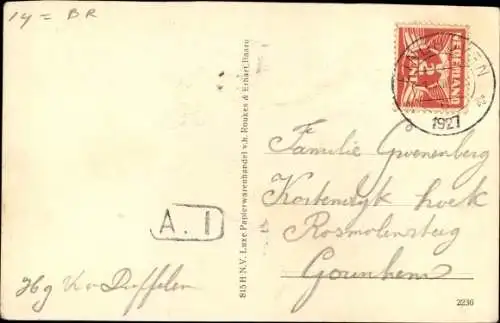 14 = BR
NEDERLAND
2
1927
815 H N.V. Luxe Papierwarenhandel v.h. Roukes & Erhart, Baarn
Familie Groenenberg
Kortendijk hoek
Rosmolensteeg
Gorinchem
A. I
Hg K v Duffelen
2236